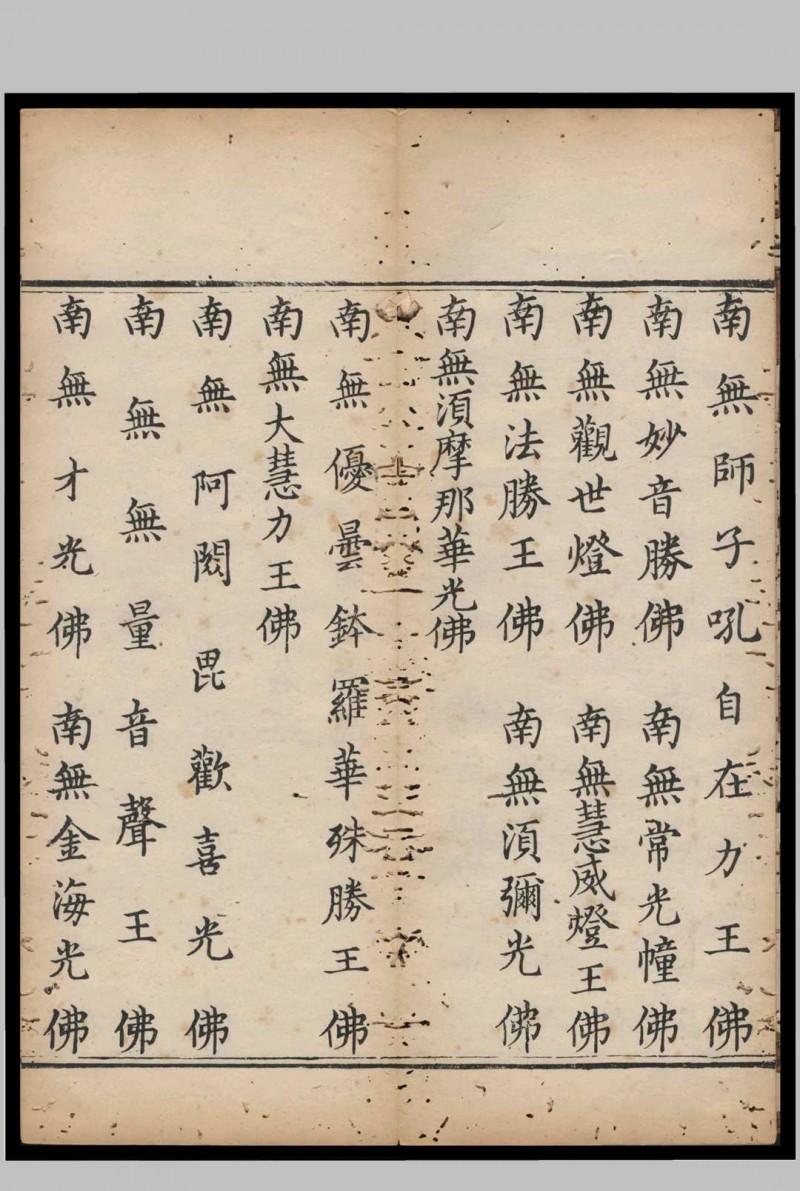 南無師子吼自在力王佛
南無妙音勝佛 南無常光幢佛
南無觀世燈佛 南無慧威燈王佛
南無法勝王佛 南無須彌光佛
南無須摩那華光佛
南無優曇鉢羅華殊勝王佛
南無大慧力王佛
南無阿閦毘歡喜光佛
南無無量音聲王佛
南無才光佛 南無金海光佛